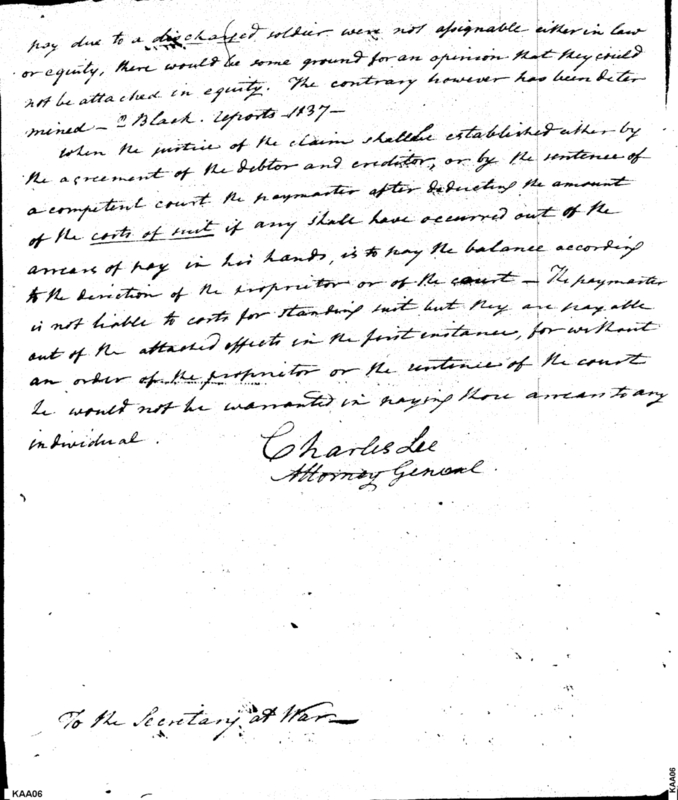 pay due to a discharged soldier were not assignable either in law
or equity, there would be some ground for an opinion that they could
not be attached in equity. The contrary however has been deter
mined — 2 Black. reports 1137 —
When the justice of the claim shall be established either by
the agreement of the debtor and creditor, or by the sentence of
a competent court the paymaster after deducting the amount
of the costs of suit if any shall have occurred out of the
arrears of pay in his hands, is to pay the balance according
to the direction of the proprietor or of the court — The paymaster
is not liable to costs for standing suit but they are payable
out of the attached effects in the first instance, for without
an order of the proprietor or the sentence of the court
he would not be warranted in paying those arrears to any
individual.
Charles Lee
Attorney General.
To the Secretary at War —
KAA06
KAA06